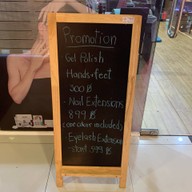 Promotion
Gel Polish
Hands + feet
200 ฿
- Nail Extensions
899 ฿
(one colour included)
Eyelash Extension
start 999 ฿